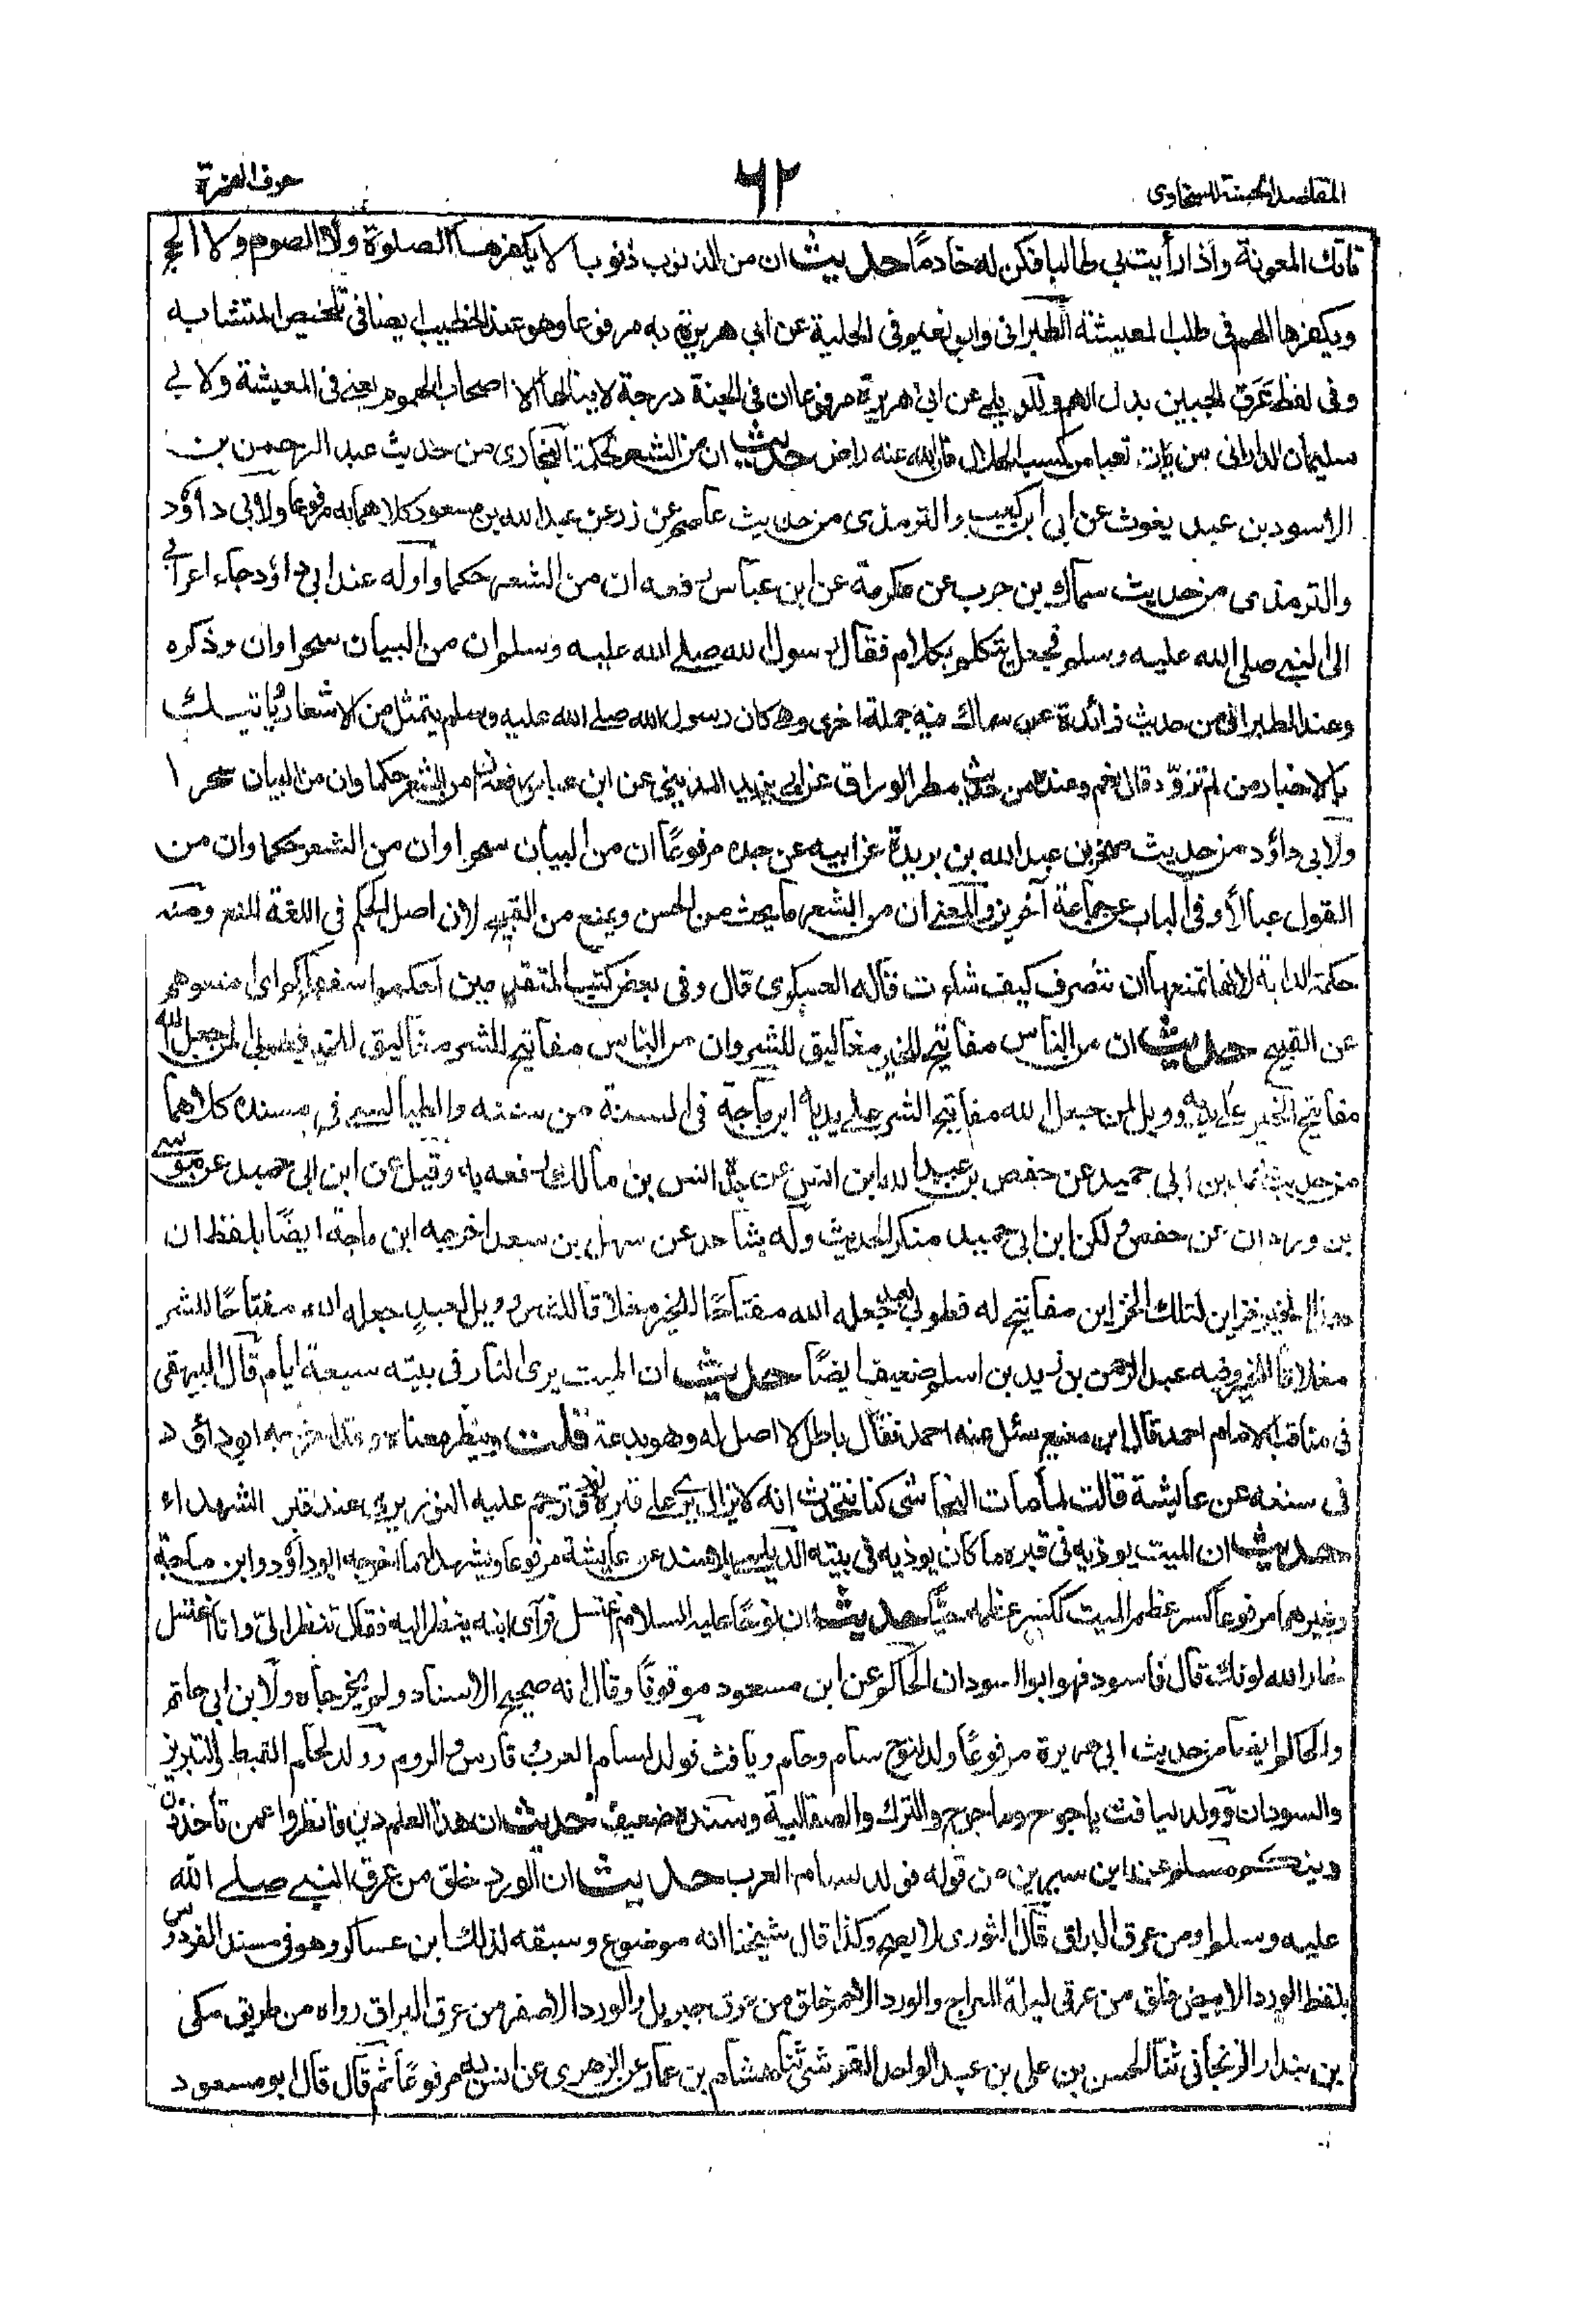 المقاصد الحسنة للسخاوى
٦٢
حرف الهمزة
فاتك المعونة واذا رأيت لى طالبا فكن له خادمًا حديث ان من الذنوب ذنوبا لا يكفرها الصلوة ولا الصوم ولا الحج
ويكفرها الهم فى طلب المعيشة الطبرانى وابو نعيم فى الحلية عن ابى هريرة به مرفوعا وهو عند الخطيب ايضا فى تلخيص المتشابه
وفى لفظ عرق الجبين بدل الهم وللديلمى عن ابى هريرة مرفوعا ان فى الجنة درجة لا ينالها الا اصحاب الهموم يعنى فى المعيشة ولابى
سليمان الدارانى من بات تعبا من كسب الحلال فالله عنه راض حديث ان من الشعر لحكمة البخارى من حديث عبد الرحمن بن
الاسود بن عبد يغوث عن ابى ابن كعب والترمذى من حديث عاصم عن زر عن عبد الله بن مسعود كلاهما به مرفوعا ولابى داؤد
والترمذى من حديث سماك بن حرب عن عكرمة عن ابن عباس رفعه ان من الشعر حكما واوله عند ابى داؤد جاء اعرابى
الى النبى صلى الله عليه وسلم فجعل يتكلم بكلام فقال رسول الله صلے الله عليه وسلم ان من البيان سحرا وان وذكره
وعند الطبرانى من حديث زائدة عن سماك فيه جملة اخرى وهى كان رسول الله صلے الله عليه وسلم يتمثل من الاشعار ويأتيك
بالاخبار من لم تزوّد قال نعم وعنده من حديث مطر الوراق عن ابى يزيد المدينى عن ابن عباس رفعه ان من الشعر حكما وان من البيان سحرا
ولابى داؤد من حديث صخر بن عبد الله بن بريدة عن ابيه عن جده مرفوعًا ان من البيان سحرا وان من الشعر حكما وان من
القول عيالا وفى الباب عن جماعة آخرين والمعنى ان من الشعر ما يحث من الحسن ويمنع من القبيح لان اصل الحكم فى اللغة المنع ومنه
حكمة الدابة لانها تمنعها ان تتصرف كيف شاءت قاله العسكرى قال وفى بعض كتب المتقدمين احكموا سفهاءكم اى امنعوهم
عن القبيح حديث ان من الناس مفاتيح للخير مغاليق للشر وان من الناس مفاتيح للشر مغاليق للخير فطوبى لمن جعل الله
مفاتيح الخير على يديه وويل لمن جعل الله مفاتيح الشر على يديه ابن ماجة فى السنة من سننه والطيالسى فى مسنده كلاهما
من حديث محمد بن ابى حميد عن حفص بن عبيد الله ابن انس عن جده انس بن مالك رفعه به وقيل عن ابن ابى حميد عن موسى
بن وردان عن حفص ولكن ابن ابى حميد منكر الحديث وله شاهد عن سهل بن سعد اخرجه ابن ماجة ايضًا بلفظ ان
هذا الخير خزاين لتلك الخزاين مفاتيح له فطوبى لعبد جعله الله مفتاحًا للخير مغلاقا للشر وويل لعبد جعله الله مفتاحًا للشر
مغلاقا للخير وفيه عبد الرحمن بن زيد بن اسلم ضعيف ايضًا حديث ان الميت يرى النار فى بيته سبعة ايام قال البيهقى
فى مناقب الامام احمد قال ابن منيع سئل عنه احمد فقال باطل لا اصل له وهو بدعة قلت وينظر معناه وقد اخرجه ابوداؤد
فى سننه عن عايشة قالت لما مات النجاشى كنا نتحدث انه لا يزال يرى على قبره نور وترجم عليه النور يرى عند قبر الشهداء
حديث ان الميت يوذيه فى قبره ما كان يوذيه فى بيته الديلمى بلا سند عن عايشة مرفوعا ويشهد لها ما اخرجه ابوداؤد وابن ماجة
وغيرهما مرفوعا كسر عظم الميت ككسر عظمه حيًّا حديث ان نوحًا عليه السلام اغتسل فرآى ابنه ينظر اليه فقال تنظر الىّ وانا اغتسل
حار الله لونك قال فاسود فهو ابو السودان الحاكم عن ابن مسعود موقوفًا وقال انه صحيح الاسناد ولم يخرجاه ولابن ابى حاتم
والحاكم ايضا من حديث ابى هريرة مرفوعًا ولد لنوح سام وحام ويافث فولد لسام العرب وفارس والروم وولد لحام القبط والبربر
والسودان وولد ليافث ياجوج وماجوج والترك والصقالبة وسنده ضعيف حديث ان هذا العلم دين فانظروا عمن تأخذون
دينكم مسلم عن ابن سيرين من قوله فولد لسام العرب حديث ان الورد خلق من عرق النبى صلے الله
عليه وسلم او من عرق البراق قال النووى لا يصح وكذا قال شيخنا انه موضوع وسبقه لذلك ابن عساكر وهو فى مسند الفردوس
بلفظ الورد الابيض خلق من عرقى ليلة المعراج والورد الاحمر خلق من عرق جبريل والورد الاصفر من عرق البراق رواه من طريق مكى
بن بندار الزنجانى ثنا الحسن بن على بن عبد الواحد القرشى ثنا هشام بن عمار عن الزهرى عن انس به مرفوعًا ثم قال قال ابو مسعود